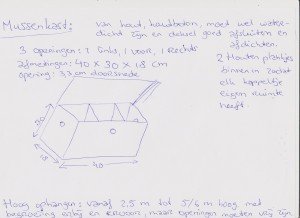 Mussenkast:
van hout, houtbeton, moet wel water-
dicht zijn en deksel goed afsluiten en
afdichten.
3 openingen: 1 links, 1 voor, 1 rechts
afmetingen: 40 x 30 x 18 cm
opening: 3,2 cm doorsnede
2 Houten plankjes
binnen in zodat
elk koppeltje
eigen ruimte
heeft.
30
18
40
Hoog ophangen: vanaf 2.5 m tot 5/6 m hoog met
begroeiing erbij en ervoor, maar openingen moeten vrij zijn